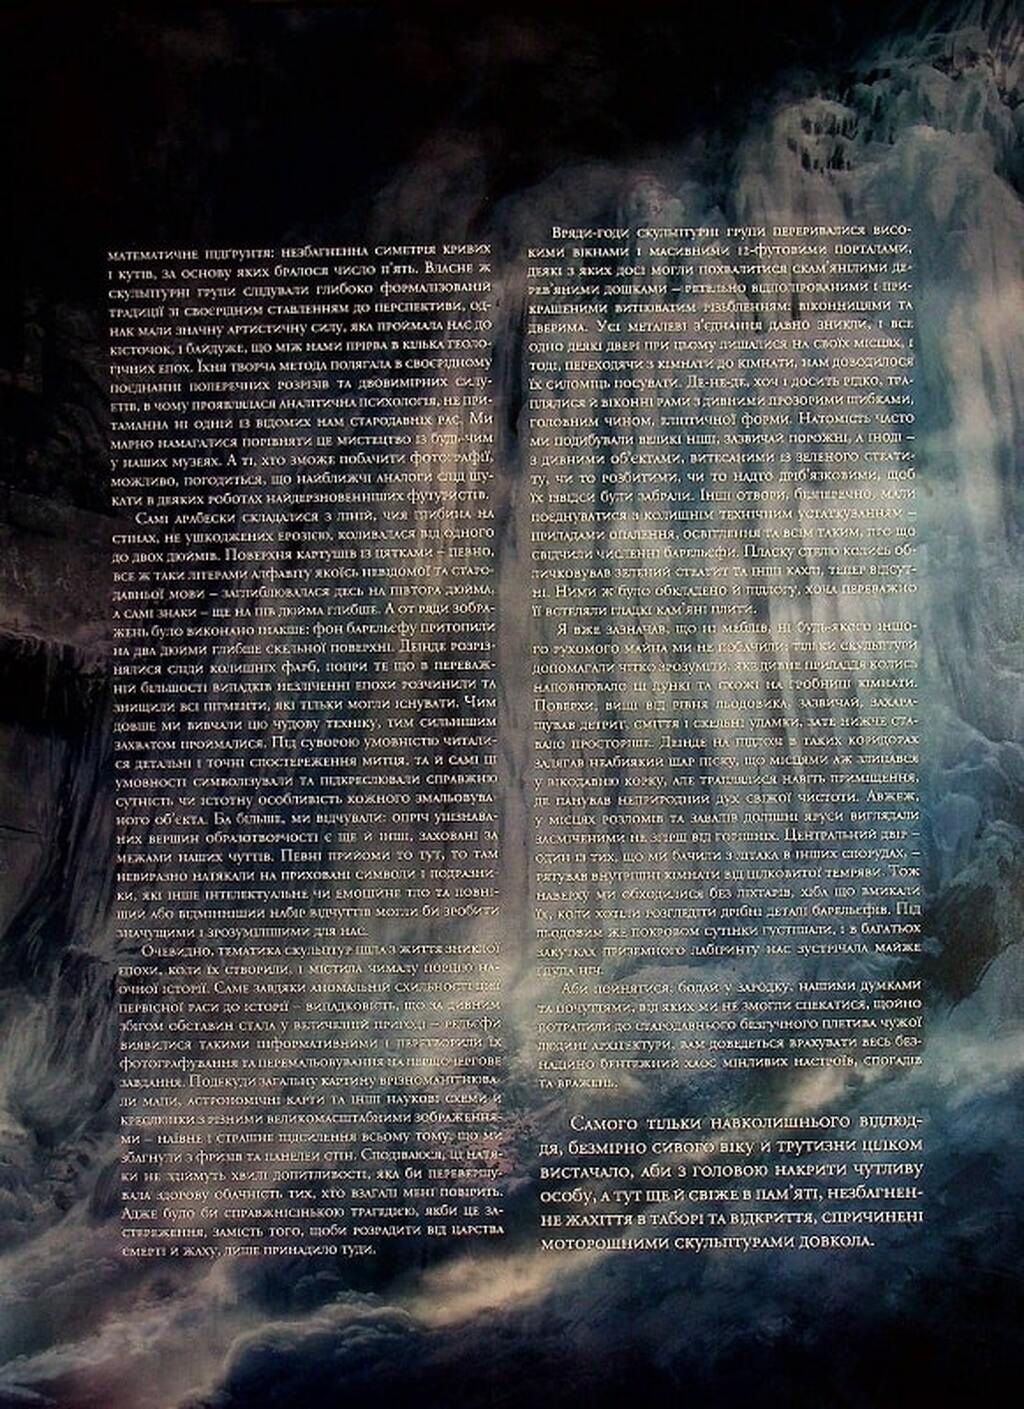 математичне підґрунтя: незбагненна симетрія кривих
і кутів, за основу яких бралося число п'ять. Власне ж
скульптурні групи слідували глибоко формалізованій
традиції зі своєрідним ставленням до перспективи, од-
нак мали значну артистичну силу, яка проймала нас до
кісточок, і байдуже, що між нами прірва в кілька геоло-
гічних епох. Їхня творча метода полягала в своєрідному
поєднанні поперечних розрізів та двовимірних силу-
етів, в чому проявлялася аналітична психологія, не при-
таманна ні одній із відомих нам стародавніх рас. Ми
марно намагалися порівняти це мистецтво із будь-чим
у наших музеях. А ті, хто зможе побачити фотографії,
можливо, погодиться, що найближчі аналоги слід шу-
кати в деяких роботах найдерзновенніших футуристів.
Самі арабески складалися з ліній, чия глибина на
стінах, не ушкоджених ерозією, коливалася від одного
до двох дюймів. Поверхня картушів із цятками – певно,
все ж таки літерами алфавіту якоїсь невідомої та старо-
давньої мови – заглиблювалася десь на півтора дюйма,
а самі знаки – ще на пів дюйма глибше. А от ряди зобра-
жень було виконано інакше: фон барельєфу притопили
на два дюйми глибше скельної поверхні. Деінде розріз-
нялися сліди колишніх фарб, попри те що в переваж-
ній більшості випадків незліченні епохи розчинили та
знищили всі пігменти, які тільки могли існувати. Чим
довше ми вивчали цю чудову техніку, тим сильнішим
захватом проймалися. Під суворою умовністю читали-
ся детальні і точні спостереження митця, та й самі ці
умовності символізували та підкреслювали справжню
сутність чи істотну особливість кожного змальовува-
ного об'єкта. Ба більше, ми відчували: опріч упізнава-
них вершин образотворчості є ще й інші, заховані за
межами наших чуттів. Певні прийоми то тут, то там
невиразно натякали на приховані символи і подразни-
ки, які інше інтелектуальне чи емоційне тло та повні-
ший або відмінніший набір відчуттів могли би зробити
значущими і зрозумілішими для нас.
Очевидно, тематика скульптур ішла з життя зниклої
епохи, коли їх створили, і містила чималу порцію на-
очної історії. Саме завдяки аномальній схильності цієї
первісної раси до історії – випадковість, що за дивним
збігом обставин стала у величезній пригоді – рельєфи
виявилися такими інформативними і перетворили їх
фотографування та перемальовування на першочергове
завдання. Подекуди загальну картину врізноманітнюва-
ли мапи, астрономічні карти та інші наукові схеми й
креслюнки з різними великомасштабними зображення-
ми – наївне і страшне підсилення всьому тому, що ми
збагнули з фризів та панелей стін. Сподіваюся, ці натя-
ки не здіймуть хвилі допитливості, яка би перевершу-
вала здорову обачність тих, хто взагалі мені повірить.
Адже було би справжнісінькою трагедією, якби це за-
стереження, замість того, щоби розрадити від царства
смерті й жаху, лише принадило туди.
Вряди-годи скульптурні групи переривалися висо-
кими вікнами і масивними 12-футовими порталами,
деякі з яких досі могли похвалитися скам'янілими де-
рев'яними дошками – ретельно відполірованими і при-
крашеними витіюватим різьбленням віконницями та
дверима. Усі металеві з'єднання давно зникли, і все
одно деякі двері при цьому лишалися на своїх місцях, і
тоді, переходячи з кімнати до кімнати, нам доводилося
їх силоміць посувати. Де-не-де, хоч і досить рідко, тра-
плялися й віконні рами з дивними прозорими шибками,
головним чином, еліптичної форми. Натомість часто
ми подибували великі ніші, зазвичай порожні, а іноді –
з дивними об'єктами, витесаними із зеленого стеати-
ту, чи то розбитими, чи то надто дріб'язковими, щоб
їх ізвідси були забрали. Інші отвори, безперечно, мали
поєднуватися з колишнім технічним устаткуванням –
приладами опалення, освітлення та всім таким, про що
свідчили численні барельєфи. Пласку стелю колись об-
личковував зелений стеатит та інші кахлі, тепер відсут-
ні. Ними ж було обкладено й підлогу, хоча переважно
її встеляли гладкі кам'яні плити.
Я вже зазначав, що ні меблів, ні будь-якого іншо-
го рухомого майна ми не побачили; тільки скульптури
допомагали чітко зрозуміти, яке дивне приладдя колись
наповнювало ці лункі та схожі на гробниці кімнати.
Поверхи, вищі від рівня льодовика, зазвичай, захара-
щував детрит, сміття і скельні уламки, зате нижче ста-
вало просторіше. Деінде на підлозі в таких коридорах
залягав неабиякий шар піску, що місцями аж злипався
у вікодавню корку, але траплялися навіть приміщення,
де панував неприродний дух свіжої чистоти. Авжеж,
у місцях розломів та завалів долішні яруси виглядали
засміченими не згірш від горішніх. Центральний двір –
один із тих, що ми бачили з літака в інших спорудах, –
рятував внутрішні кімнати від цілковитої темряви. Тож
наверху ми обходилися без ліхтарів, хіба що вмикали
їх, коли хотіли розгледіти дрібні деталі барельєфів. Під
льодовим же покровом сутінки густішали, і в багатьох
закутках приземного лабіринту нас зустрічала майже
глупа ніч.
Аби пройнятися, бодай у зародку, нашими думками
та почуттями, від яких ми не змогли спекатися, щойно
потрапили до стародавнього безгучного плетива чужої
людині архітектури, вам доведеться врахувати весь без-
надійно бентежний хаос мінливих настроїв, спогадів
та вражень.
Самого тільки навколишнього відлюд-
дя, безмірно сивого віку й трутизни цілком
вистачало, аби з головою накрити чутливу
особу, а тут ще й свіже в пам'яті, незбагнен-
не жахіття в таборі та відкриття, спричинені
моторошними скульптурами довкола.